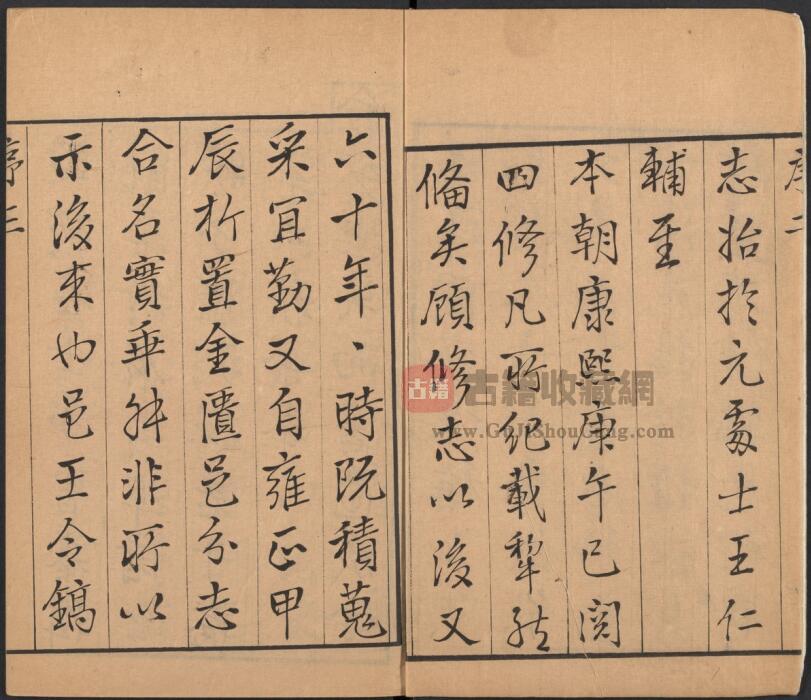 序二
志始於元處士王仁
輔至
本朝康熙庚午已閱
四修凡所紀載犂然
備矣顧修志以後又
六十年、時既積蒐
采宜勤又自雍正甲
辰析置金匱邑分志
合名實乖舛非所以
示後來也邑王令鎬
序三
古籍
古籍收藏網
www.GuJiShouCang.com